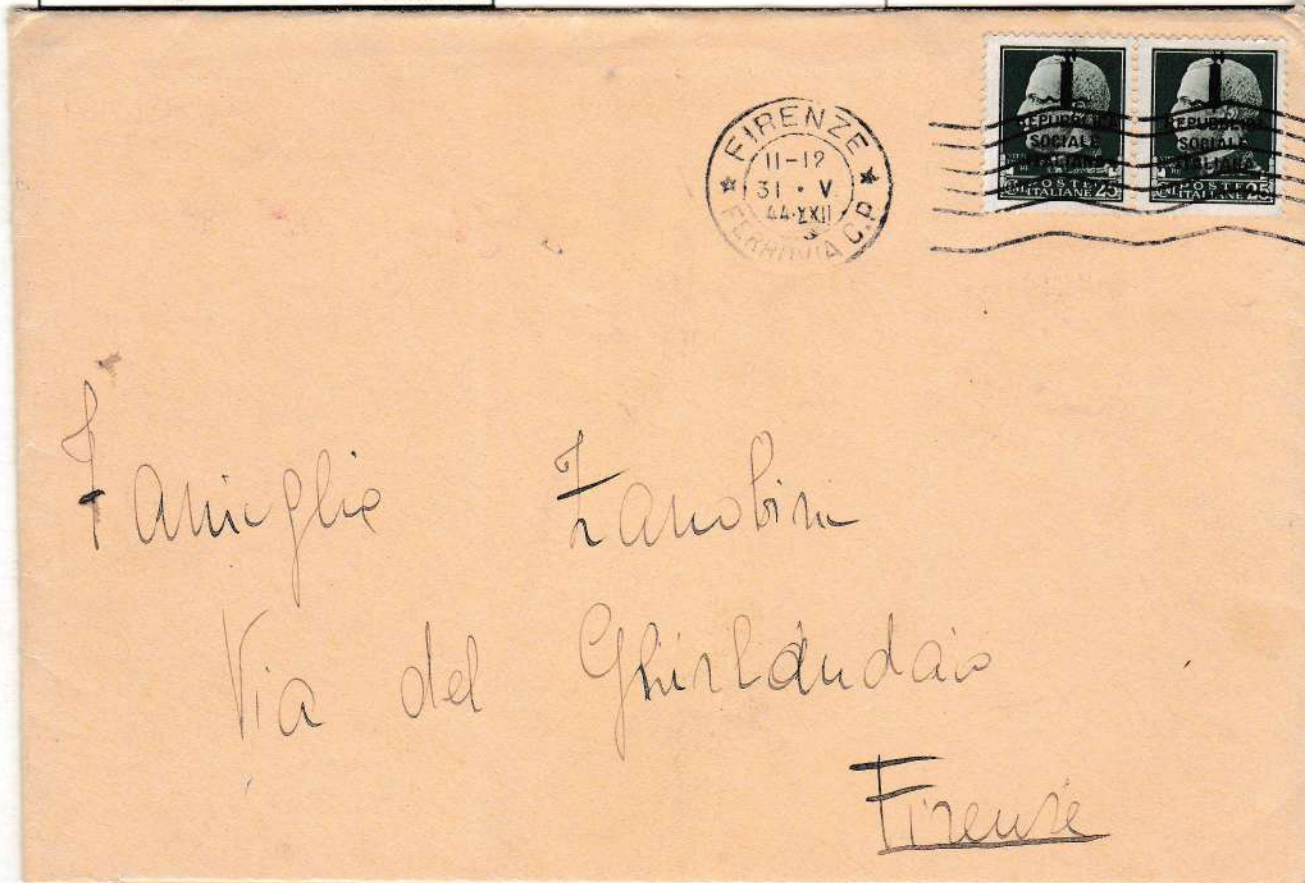 FIRENZE
11-12
31 • V.
44•XXII
FERROVIA C.P.
REPUBBLICA
SOCIALE
ITALIANA
POSTE
ITALIANE 25
REPUBBLICA
SOCIALE
ITALIANA
POSTE
ITALIANE 25
Famiglia Zanobini
Via del Ghirlandaio
Firenze